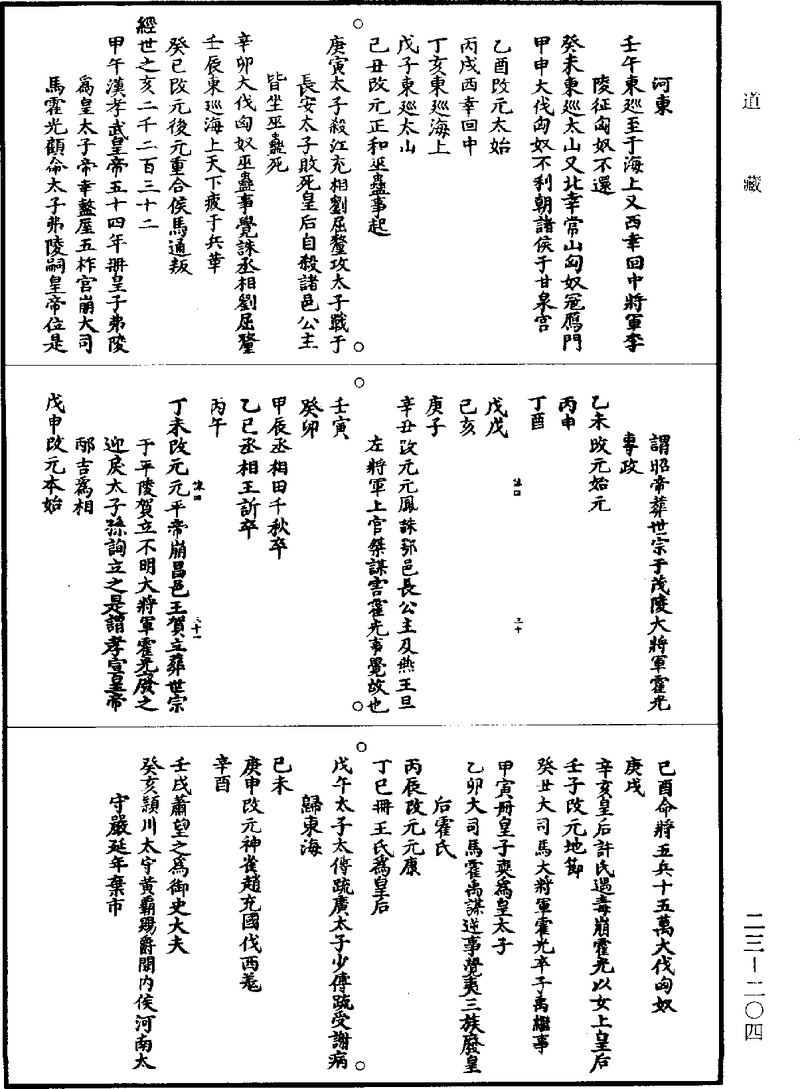 道藏
河東
壬午東廵至于海上又西幸回中將軍李
陵征匈奴不還
癸未東廵太山又北幸常山匈奴冦鴈門
甲申大伐匈奴不利朝諸侯于甘泉宫
乙酉改元太始
丙戌西幸回中
丁亥東廵海上
戊子東廵太山
己丑改元正和巫蠱事起
庚寅太子殺江充相劉屈氂攻太子戰于
長安太子敗死皇后自殺諸邑公主
皆坐巫蠱死
辛卯大伐匈奴巫蠱事覺誅丞相劉屈氂
壬辰東廵海上天下疲于兵革
癸巳改元後元重合侯馬通叛
經世之亥二千二百三十二
甲午漢孝武皇帝五十四年冊皇子弗陵
爲皇太子帝幸盩厔五柞宫崩大司
馬霍光顧命太子弗陵嗣皇帝位是
謂昭帝葬世宗于茂陵大將軍霍光
專政
乙未改元始元
丙申
丁酉
戊戌
己亥
庚子
辛丑改元元鳳誅鄂邑長公主及燕王旦
左將軍上官桀謀害霍光事覺故也
壬寅
癸卯
甲辰丞相田千秋卒
乙巳丞相王訢卒
丙午
丁未改元元平帝崩昌邑王賀立葬世宗
于平陵賀立不明大將軍霍光廢之
迎戾太子孫詢立之是謂孝宣皇帝
邴吉爲相
戊申改元本始
己酉命將五兵十五萬大伐匈奴
庚戌
辛亥皇后許氏遇毒崩霍光以女上皇后
壬子改元地節
癸丑大司馬大將軍霍光卒子禹繼事
甲寅冊皇子奭爲皇太子
乙卯大司馬霍禹謀逆事覺夷三族廢皇
后霍氏
丙辰改元元康
丁巳冊王氏爲皇后
戊午太子太傅疏廣太子少傅疏受謝病
歸東海
己未
庚申改元神雀趙充國伐西羌
辛酉
壬戌蕭望之爲御史大夫
癸亥頴川太守黃霸賜爵關内侯河南太
守嚴延年棄市
三十
三十一
二三—二〇四